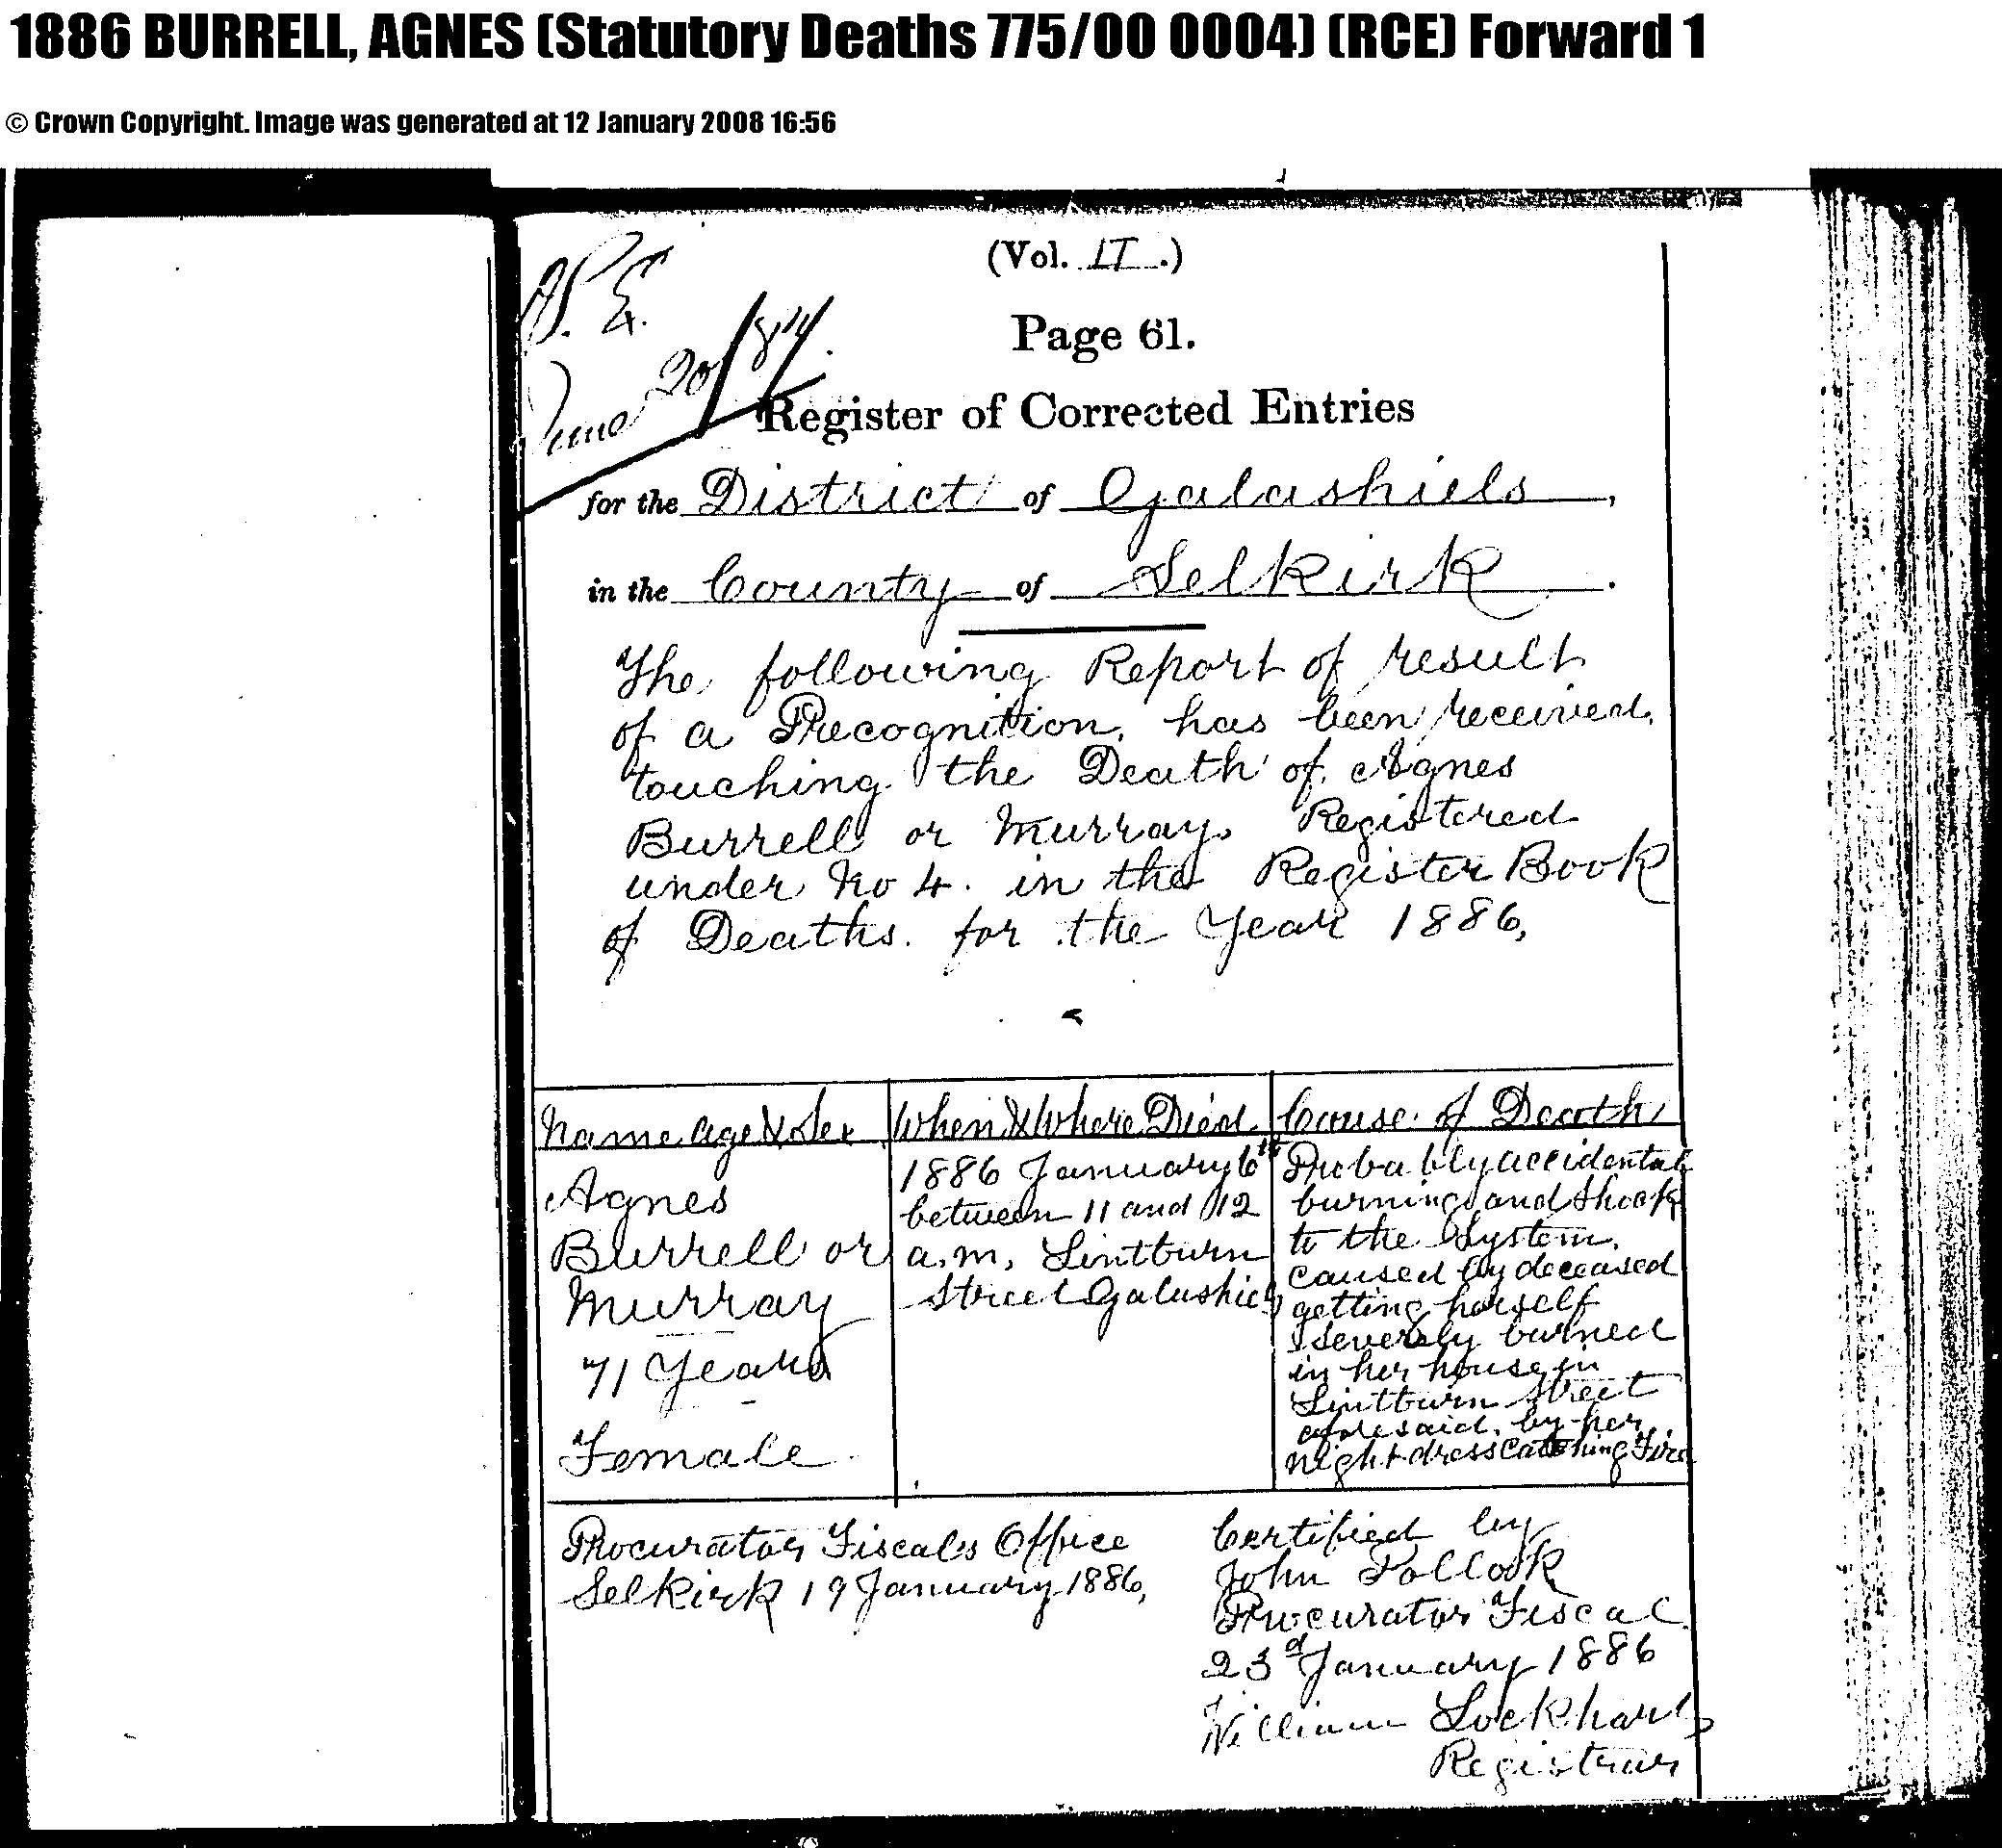 1886 BURRELL, AGNES (Statutory Deaths 775/00 0004) (RCE) Forward 1
© Crown Copyright. Image was generated at 12 January 2008 16:56
(Vol. II.)
Page 61.
June 20/87.
Register of Corrected Entries
for the District of Galashiels,
in the County of Selkirk.
The following Report of result
of a Precognition, has been received,
touching the Death of Agnes
Burrell or Murray, Registered
under No 4. in the Register Book
of Deaths. for the Year 1886,
Name Age & Sex
Agnes
Burrell or
Murray
71 Years
Female
When & Where Died
1886 January 6th
between 11 and 12
a.m, Lintburn
Street Galashiels
Cause of Death
Probably accidental
burning and Shock
to the System.
caused by deceased
getting herself
severely burned
in her house in
Lintburn Street
aforesaid. by her
night dress Catching Fire
Procurator Fiscals Office
Selkirk 19 January 1886,
Certified by
John Pollock
Procurator Fiscal.
23d January 1886
William Lockhart
Registrar